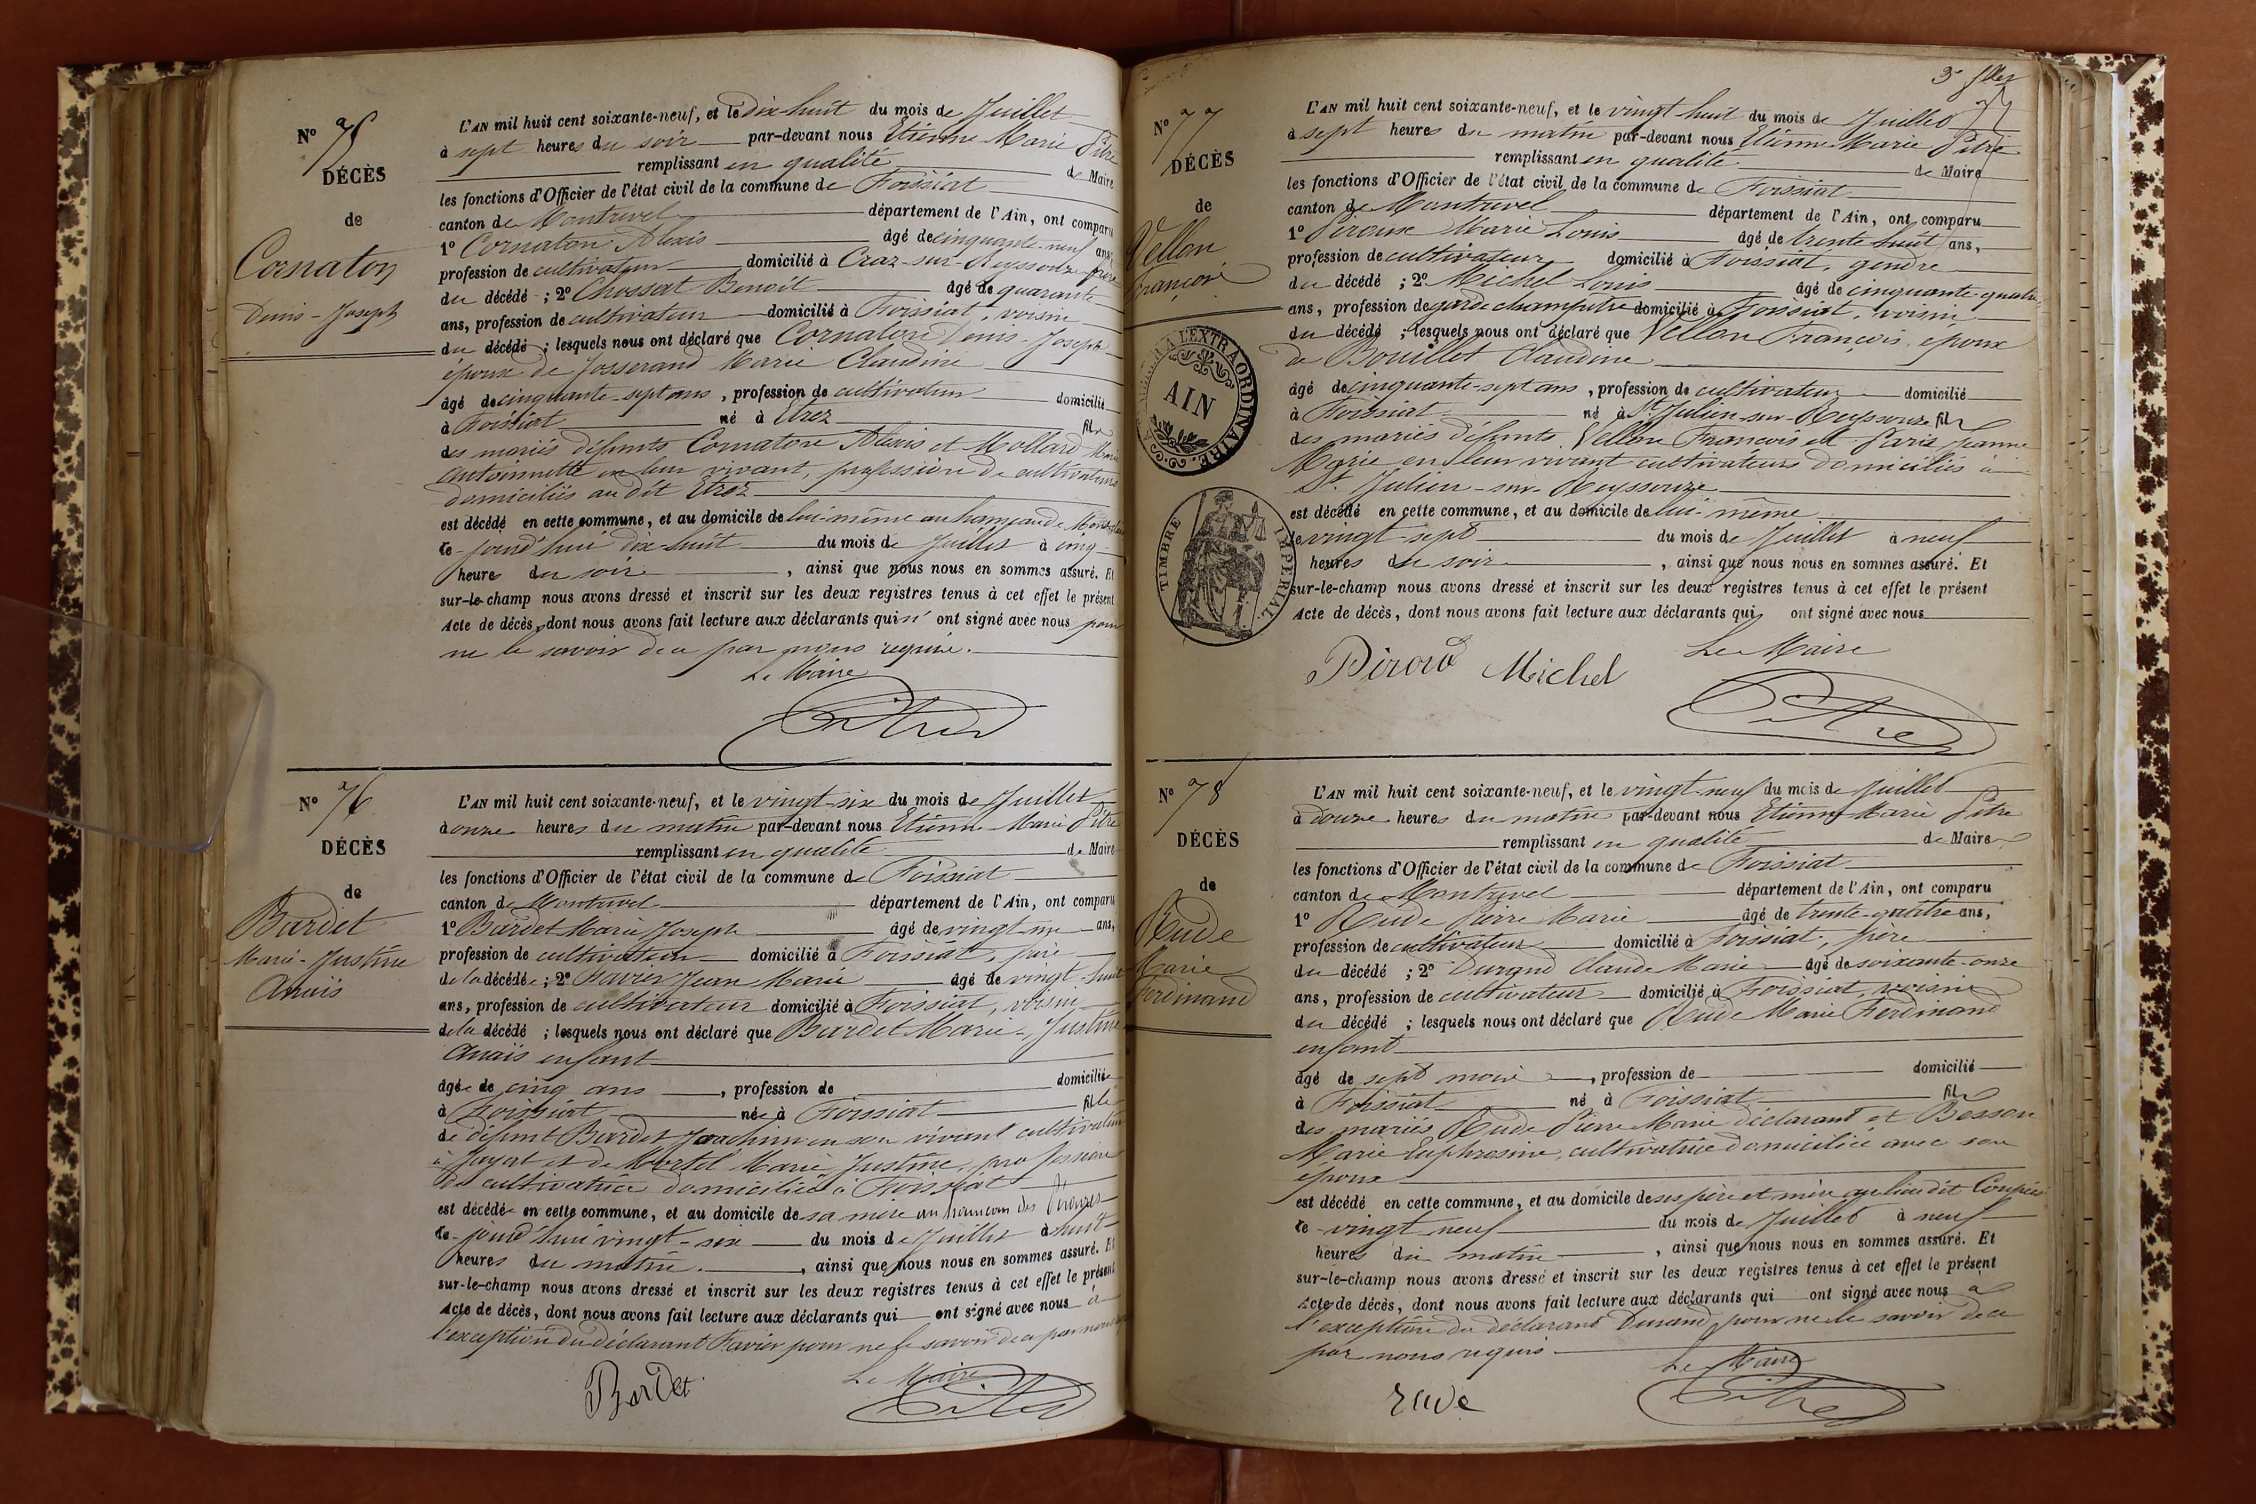 N° 75
DÉCÈS
de
Cornaton
Denis-Joseph
L'AN mil huit cent soixante-neuf, et le dix huit du mois de Juillet
à sept heures du soir par-devant nous Etienne Marie Pitre
remplissant en qualité de Maire
les fonctions d'Officier de l'état civil de la commune de Foissiat
canton de Montrevel département de l'Ain, ont comparu
1° Cornaton Alexis âgé de cinquante-neuf ans,
profession de cultivateur domicilié à Cras-sur-Reyssouze frère
du décédé ; 2° Chossat Benoit âgé de quarante
ans, profession de cultivateur domicilié à Foissiat, voisin
du décédé ; lesquels nous ont déclaré que Cornaton Denis-Joseph
époux de Josserand Marie Claudine
âgé de cinquante-sept ans, profession de cultivateur domicilié
à Foissiat né à Etrez fils
des mariés défunts Cornaton Alexis et Mollard Marie
Antoinette en leur vivant, profession de cultivateurs
domiciliés au dit Etrez
est décédé en cette commune, et au domicile de lui-même au hameau de
le jourd'hui dix-huit du mois de Juillet à cinq
heures du soir, ainsi que nous nous en sommes assuré. Et
sur-le-champ nous avons dressé et inscrit sur les deux registres tenus à cet effet le présent
Acte de décès, dont nous avons fait lecture aux déclarants qui n' ont signé avec nous pour
ne le savoir de ce par nous requis.
Le Maire
Pitre
N° 76
DÉCÈS
de
Bardet
Marie-Justine
Anais
L'AN mil huit cent soixante-neuf, et le vingt-six du mois de Juillet
à onze heures du matin par-devant nous Etienne Marie Pitre
remplissant en qualité de Maire
les fonctions d'Officier de l'état civil de la commune de Foissiat
canton de Montrevel département de l'Ain, ont comparu
1° Bardet Marie Joseph âgé de vingt-un ans,
profession de cultivateur domicilié à Foissiat,
de la décédée ; 2° Favier Jean Marie âgé de vingt-huit
ans, profession de cultivateur domicilié à Foissiat, voisin
de la décédé ; lesquels nous ont déclaré que Bardet Marie-Justine
Anais enfant
âgée de cinq ans, profession de domiciliée
à Foissiat née à Foissiat fille
de défunt Bardet Joachim en son vivant cultivateur
à Jayat et de Marie Justine, profession
de cultivatrice domiciliée à Foissiat
est décédée en cette commune, et au domicile de sa mère au hameau des
le jourd'hui vingt-six du mois de Juillet à huit
heures du matin, ainsi que nous nous en sommes assuré. Et
sur-le-champ nous avons dressé et inscrit sur les deux registres tenus à cet effet le présent
Acte de décès, dont nous avons fait lecture aux déclarants qui ont signé avec nous à
l'exception du déclarant Favier pour ne le savoir de ce par nous
Le Maire
Bardet
Pitre
N° 77
DÉCÈS
de
Vellon
François
AIN
TIMBRE IMPERIAL
L'AN mil huit cent soixante-neuf, et le vingt huit du mois de Juillet
à sept heures du matin par-devant nous Etienne Marie Pitre
remplissant en qualité de Maire
les fonctions d'Officier de l'état civil de la commune de Foissiat
canton de Montrevel département de l'Ain, ont comparu
1° Marie Louis âgé de trente huit ans,
profession de cultivateur domicilié à Foissiat, gendre
du décédé ; 2° Michel Louis âgé de cinquante-quatre
ans, profession de garde champêtre domicilié à Foissiat, voisin
du décédé ; lesquels nous ont déclaré que Vellon François époux
de Bouillet Claudine
âgé de cinquante-sept ans, profession de cultivateur domicilié
à Foissiat né à St Julien-sur-Reyssouze fils
des mariés défunts Vellon François et Paris Jeanne
Marie en leur vivant cultivateurs domiciliés à
St Julien-sur-Reyssouze
est décédé en cette commune, et au domicile de lui-même
le vingt-sept du mois de Juillet à neuf
heures du soir, ainsi que nous nous en sommes assuré. Et
sur-le-champ nous avons dressé et inscrit sur les deux registres tenus à cet effet le présent
Acte de décès, dont nous avons fait lecture aux déclarants qui ont signé avec nous
Le Maire
Michel
Pitre
N° 78
DÉCÈS
de
Rude
Marie
Ferdinand
L'AN mil huit cent soixante-neuf, et le vingt neuf du mois de Juillet
à douze heures du matin par-devant nous Etienne Marie Pitre
remplissant en qualité de Maire
les fonctions d'Officier de l'état civil de la commune de Foissiat
canton de Montrevel département de l'Ain, ont comparu
1° Rude Pierre Marie âgé de trente-quatre ans,
profession de cultivateur domicilié à Foissiat, père
du décédé ; 2° Durand Claude Marie âgé de soixante-onze
ans, profession de cultivateur domicilié à Foissiat, voisin
du décédé ; lesquels nous ont déclaré que Rude Marie Ferdinand
enfant
âgé de sept mois, profession de domicilié
à Foissiat né à Foissiat fils
des mariés Rude Pierre Marie déclarant et Besson
Marie Euphrosine, cultivatrice domiciliée avec son
époux
est décédé en cette commune, et au domicile de ses père et mère au lieu dit
le vingt neuf du mois de Juillet à neuf
heures du matin, ainsi que nous nous en sommes assuré. Et
sur-le-champ nous avons dressé et inscrit sur les deux registres tenus à cet effet le présent
Acte de décès, dont nous avons fait lecture aux déclarants qui ont signé avec nous à
l'exception du déclarant Durand pour ne le savoir de ce
par nous requis
Le Maire
rude
Pitre